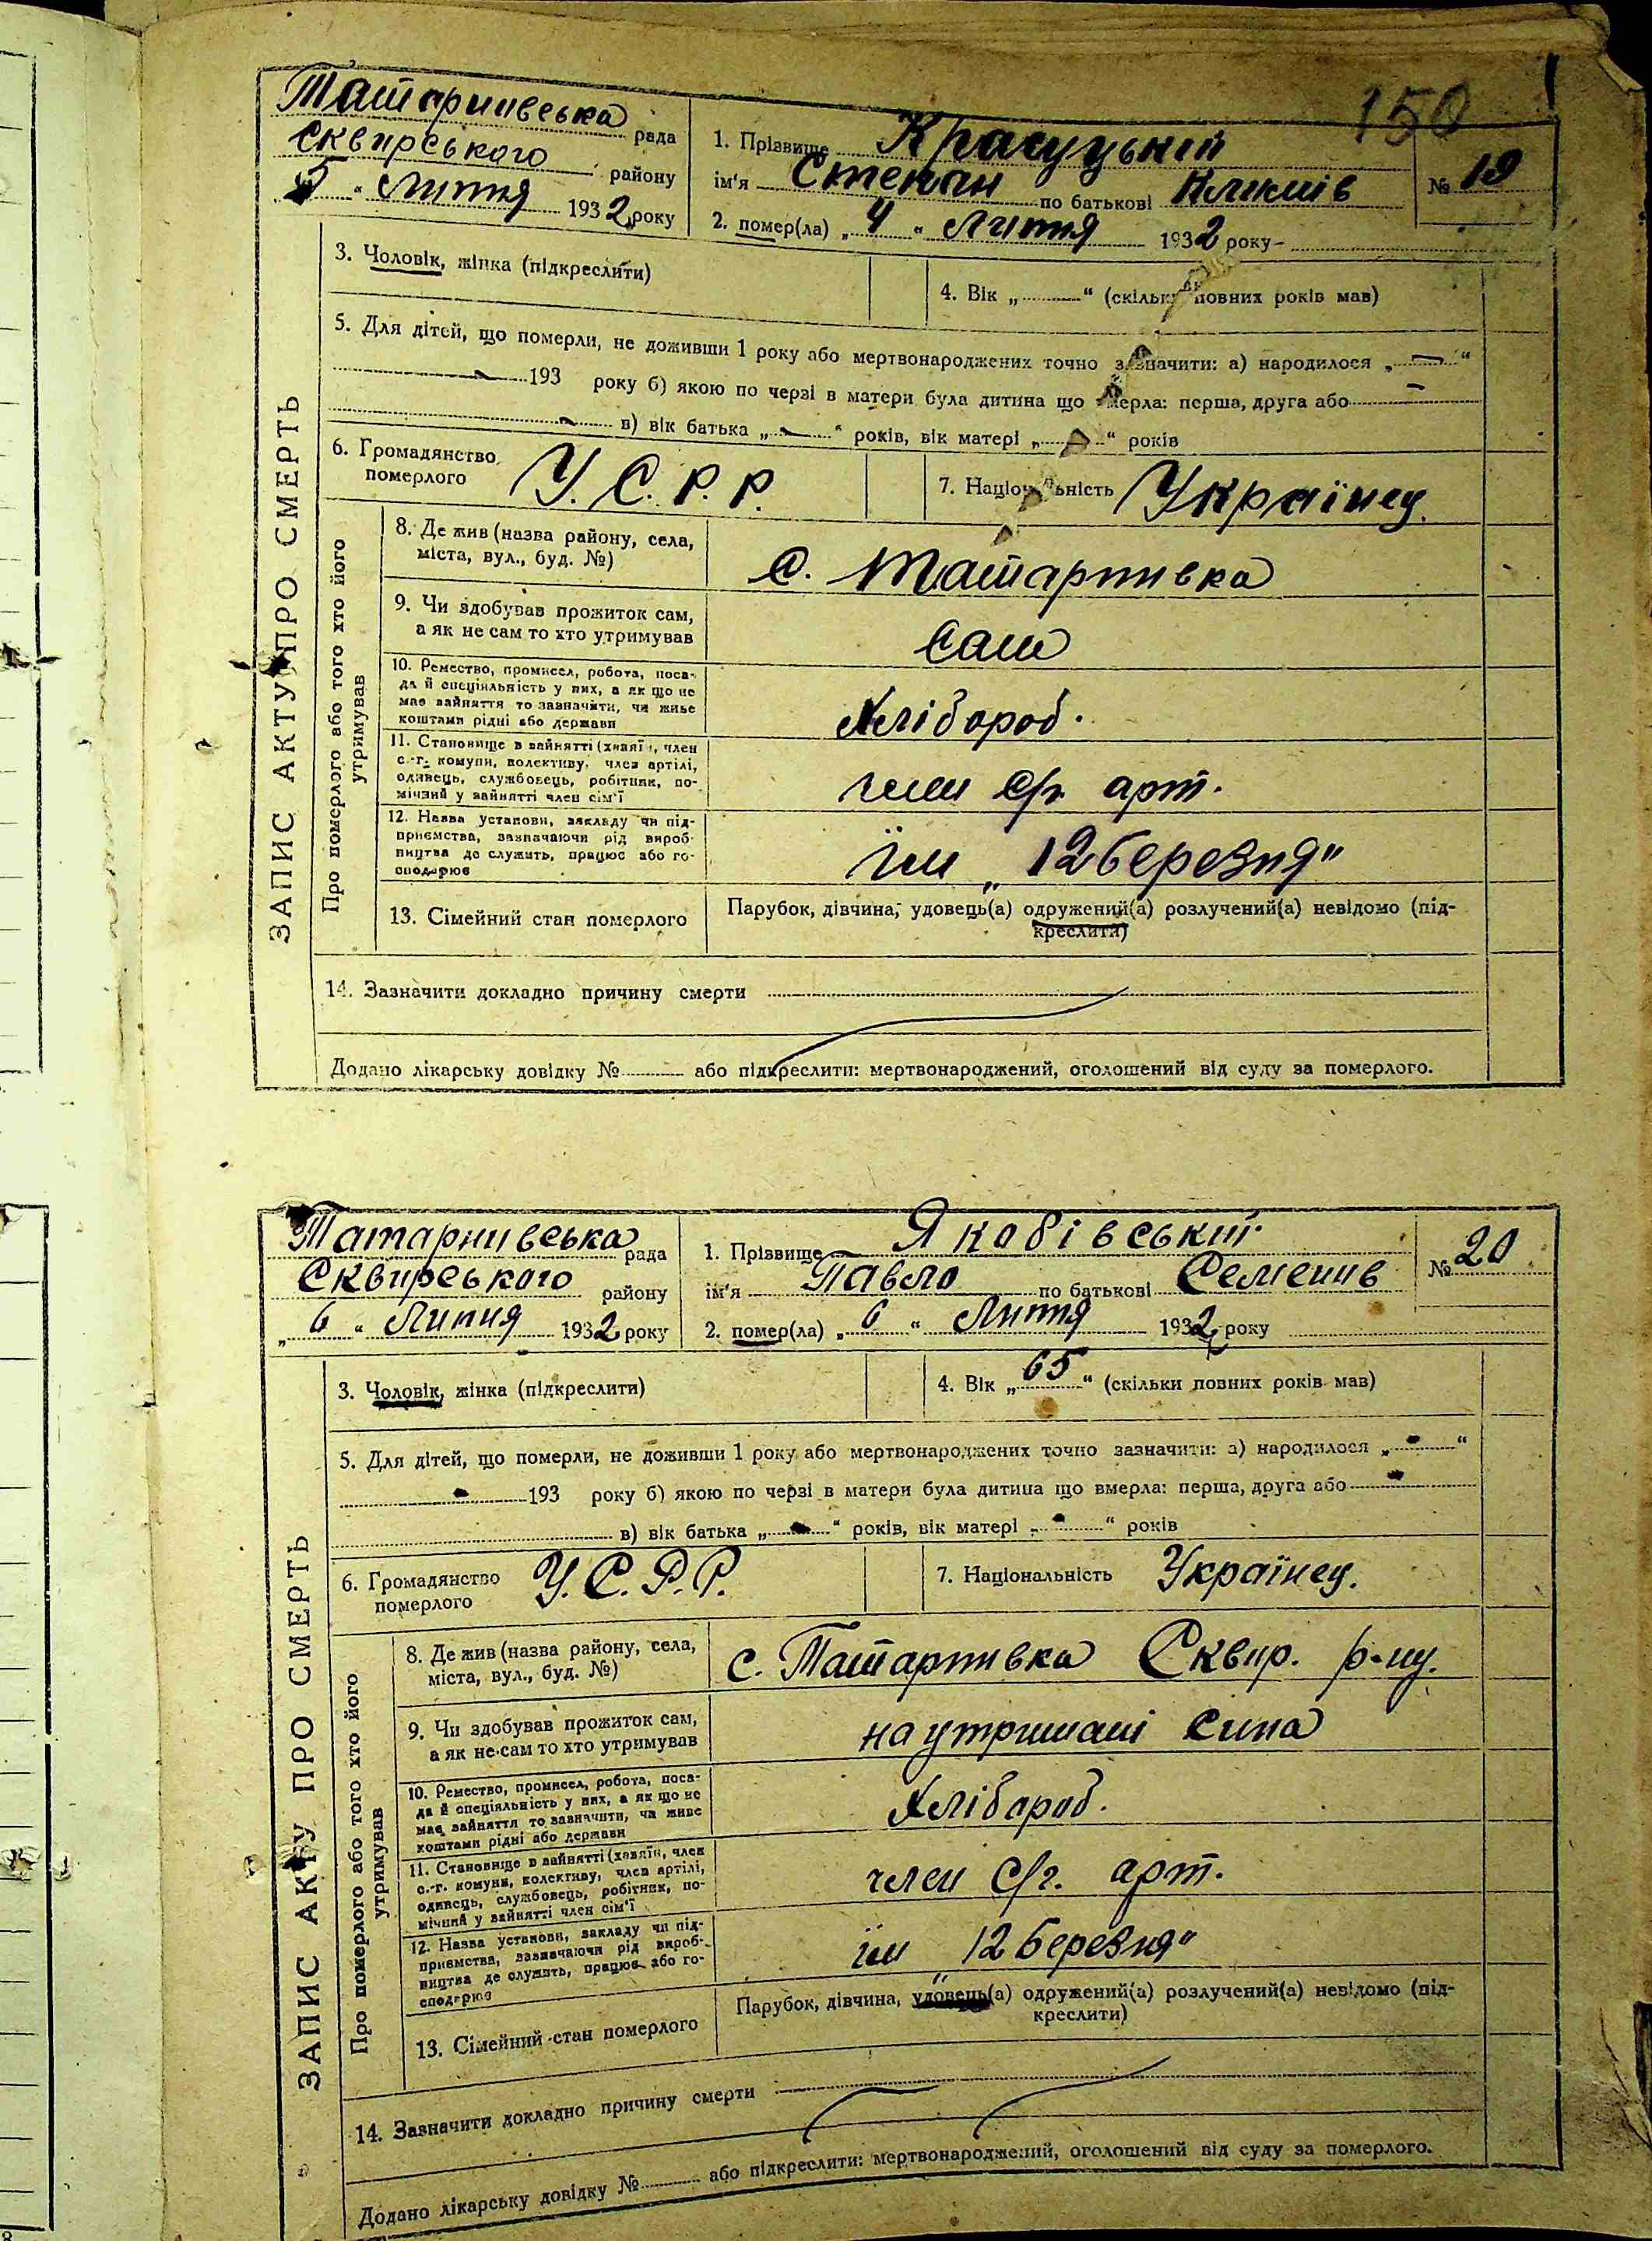 150
Татаринвська рада
Сквирського району
5 " Липня 1932 року
1. Прізвище Красуцький
ім'я Степан по батькові Климів
№ 19
2. помер(ла) „ 4 " Липня 1932 року
3. Чоловік, жінка (підкреслити)
4. Вік „ " (скільки повних років мав)
5. Для дітей, що померли, не доживши 1 року або мертвонароджених точно зазначити: а) народилося „ — "
— 193 року б) якою по черзі в матери була дитина що вмерла: перша, друга або —
— в) вік батька „ — " років, вік матері „ — " років
6. Громадянство померлого У.С.Р.Р.
7. Національність Українец.
ЗАПИС АКТУ ПРО СМЕРТЬ
Про померлого або того хто його утримував
8. Де жив (назва району, села,
міста, вул., буд. №)
с. Татаринвка
9. Чи здобував прожиток сам,
а як не сам то хто утримував
Сам
10. Ремество, промисел, робота, поса-
да й спеціяльність у них, а як що не
має зайняття то зазначити, чи живе
коштами рідні або держави
Хлібороб.
11. Становище в зайнятті (хазяїн, член
с.-г. комуни, колективу, член артілі,
одинець, службовець, робітник, по-
мічний у зайнятті член сім'ї
член С/г. арт.
12. Назва установи, закладу чи під-
приємства, зазначаючи рід вироб-
ництва де служить, працює або го-
сподарює
їм „12 березня"
13. Сімейний стан померлого
Парубок, дівчина, удовець(а) одружений(а) розлучений(а) невідомо (під-
креслити)
14. Зазначити докладно причину смерти
Додано лікарську довідку № або підкреслити: мертвонароджений, оголошений від суду за померлого.
Татаринвська рада
Сквирського району
„ 6 " Липня 1932 року
1. Прізвище Якобівський
ім'я Павло по батькові Семенив
№ 20
2. помер(ла) „ 6 " Липня 1932 року
3. Чоловік, жінка (підкреслити)
4. Вік „ 65 " (скільки повних років мав)
5. Для дітей, що померли, не доживши 1 року або мертвонароджених точно зазначити: а) народилося „ - "
- 193 року б) якою по черзі в матери була дитина що вмерла: перша, друга або -
в) вік батька „ - " років, вік матері „ - " років
6. Громадянство померлого У.С.Р.Р.
7. Національність Українец.
ЗАПИС АКТУ ПРО СМЕРТЬ
Про померлого або того хто його утримував
8. Де жив (назва району, села,
міста, вул., буд. №)
с. Татаринвка Сквир. р-ну.
9. Чи здобував прожиток сам,
а як не сам то хто утримував
на утримані сина
10. Ремество, промисел, робота, поса-
да й спеціяльність у них, а як що не
має зайняття то зазначити, чи живе
коштами рідні або держави
Хлібороб.
11. Становище в зайнятті (хазяїн, член
с.-г. комуни, колективу, член артілі,
одинець, службовець, робітник, по-
мічний у зайнятті член сім'ї
член С/г. арт.
12. Назва установи, закладу чи під-
приємства, зазначаючи рід вироб-
ництва де служить, працює або го-
сподарює
їм „12 березня"
13. Сімейний стан померлого
Парубок, дівчина, удовець(а) одружений(а) розлучений(а) невідомо (під-
креслити)
14. Зазначити докладно причину смерти
Додано лікарську довідку № або підкреслити: мертвонароджений, оголошений від суду за померлого.